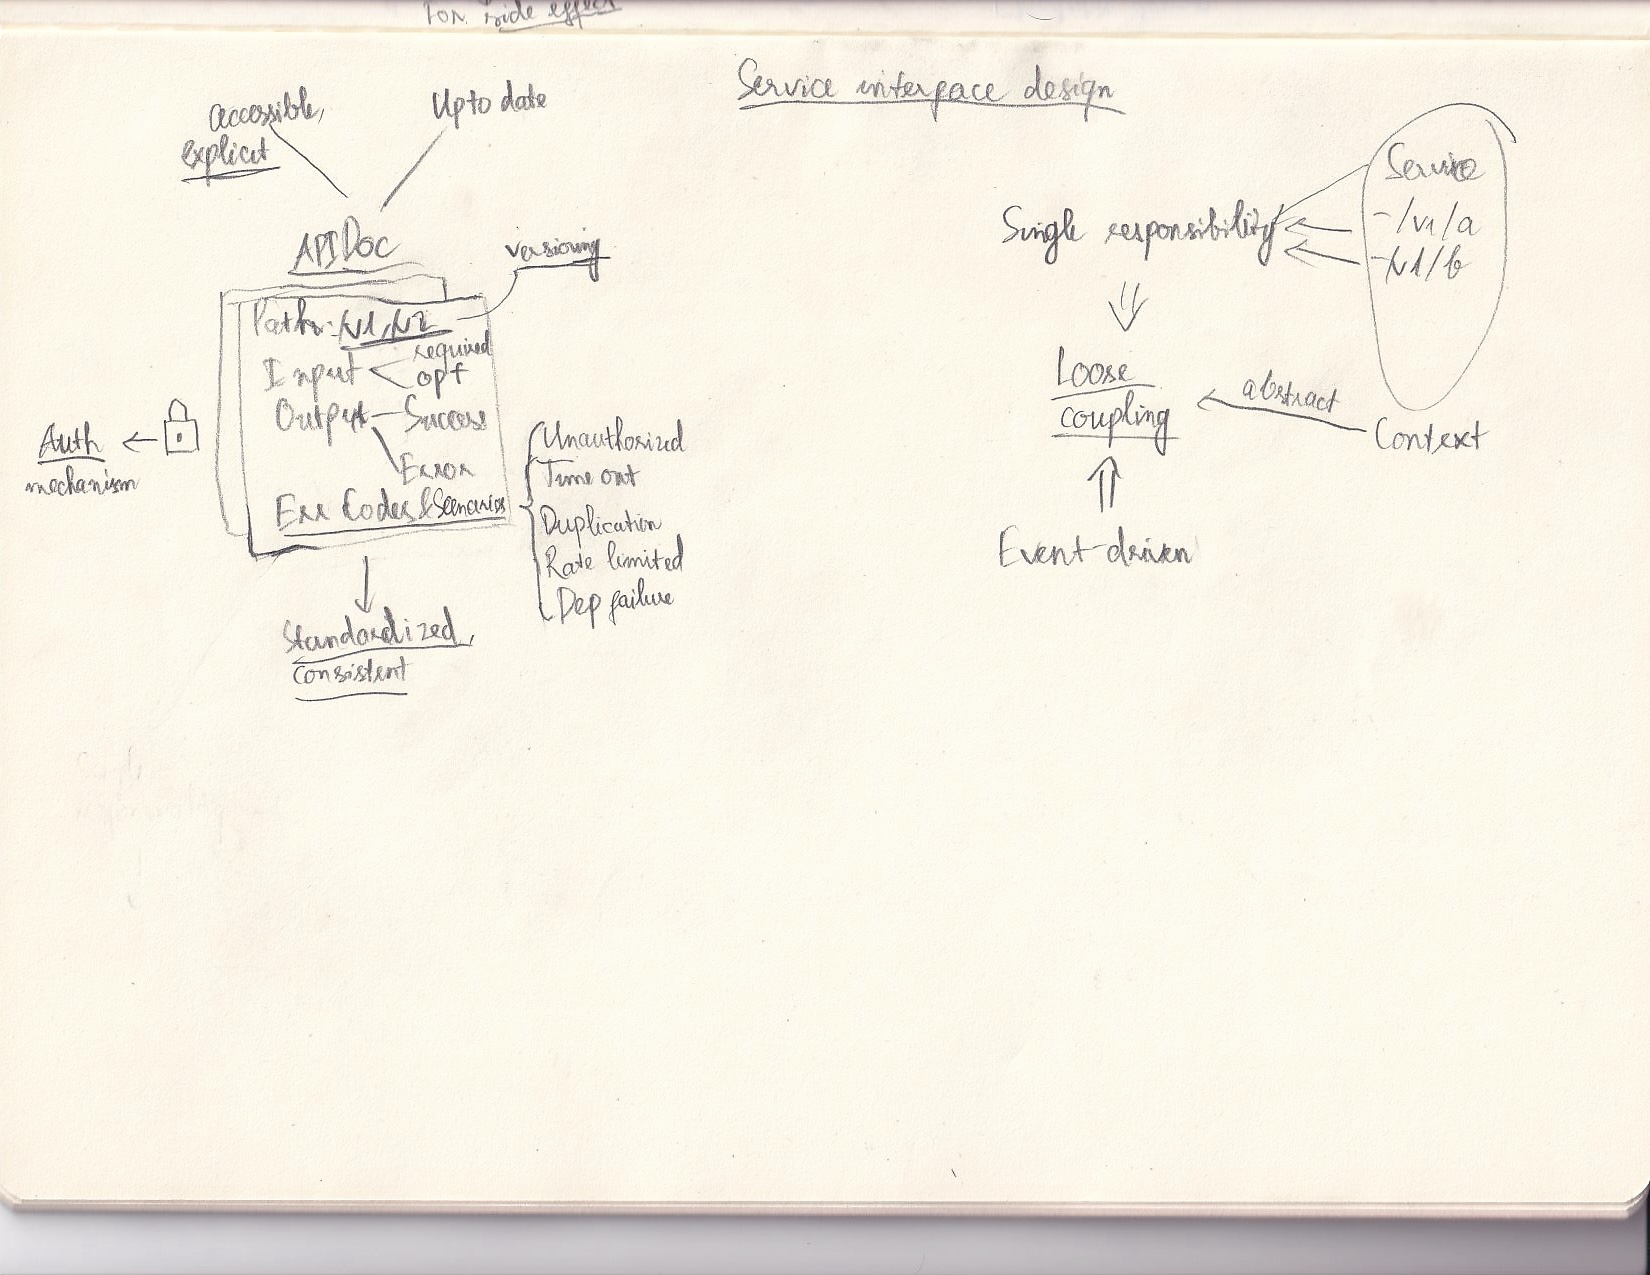 for side effect
Service interface design
accessible,
explicit
Up to date
API Doc
versioning
Path: /v1, /v2
Input
required
opt
Output - Success
Error
Err Codes & Scenarios
Auth
mechanism
Unauthorized
Time out
Duplication
Rate limited
Dep failure
Standardized,
consistent
Service
- /v1/a
- /v1/b
Single responsibility
Loose
coupling
abstract
Context
Event-driven